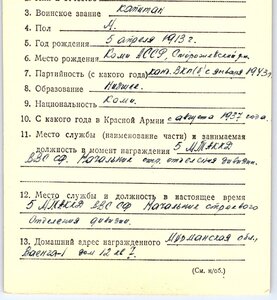 3. Воинское звание капитан
4. Пол м.
5. Год рождения 5 апреля 1913 г.
6. Место рождения Коми АССР, Сторожевский р-н
7. Партийность (с какого года) канд. ВКП(б) с января 1943 г.
8. Образование Низшее.
9. Национальность Коми.
10. С какого года в Красной Армии с августа 1937 года.
11. Место службы (наименование части) и занимаемая
должность в момент награждения 5 МТАККД
ВВС СФ. Начальник стр. отделения дивизии.
12. Место службы и должность в настоящее время
5 МТАККД ВВС СФ Начальник строевого
отделения дивизии.
13. Домашний адрес награжденного Мурманская обл.,
Ваенга-1 дом 12 кв
(См. н/об.)